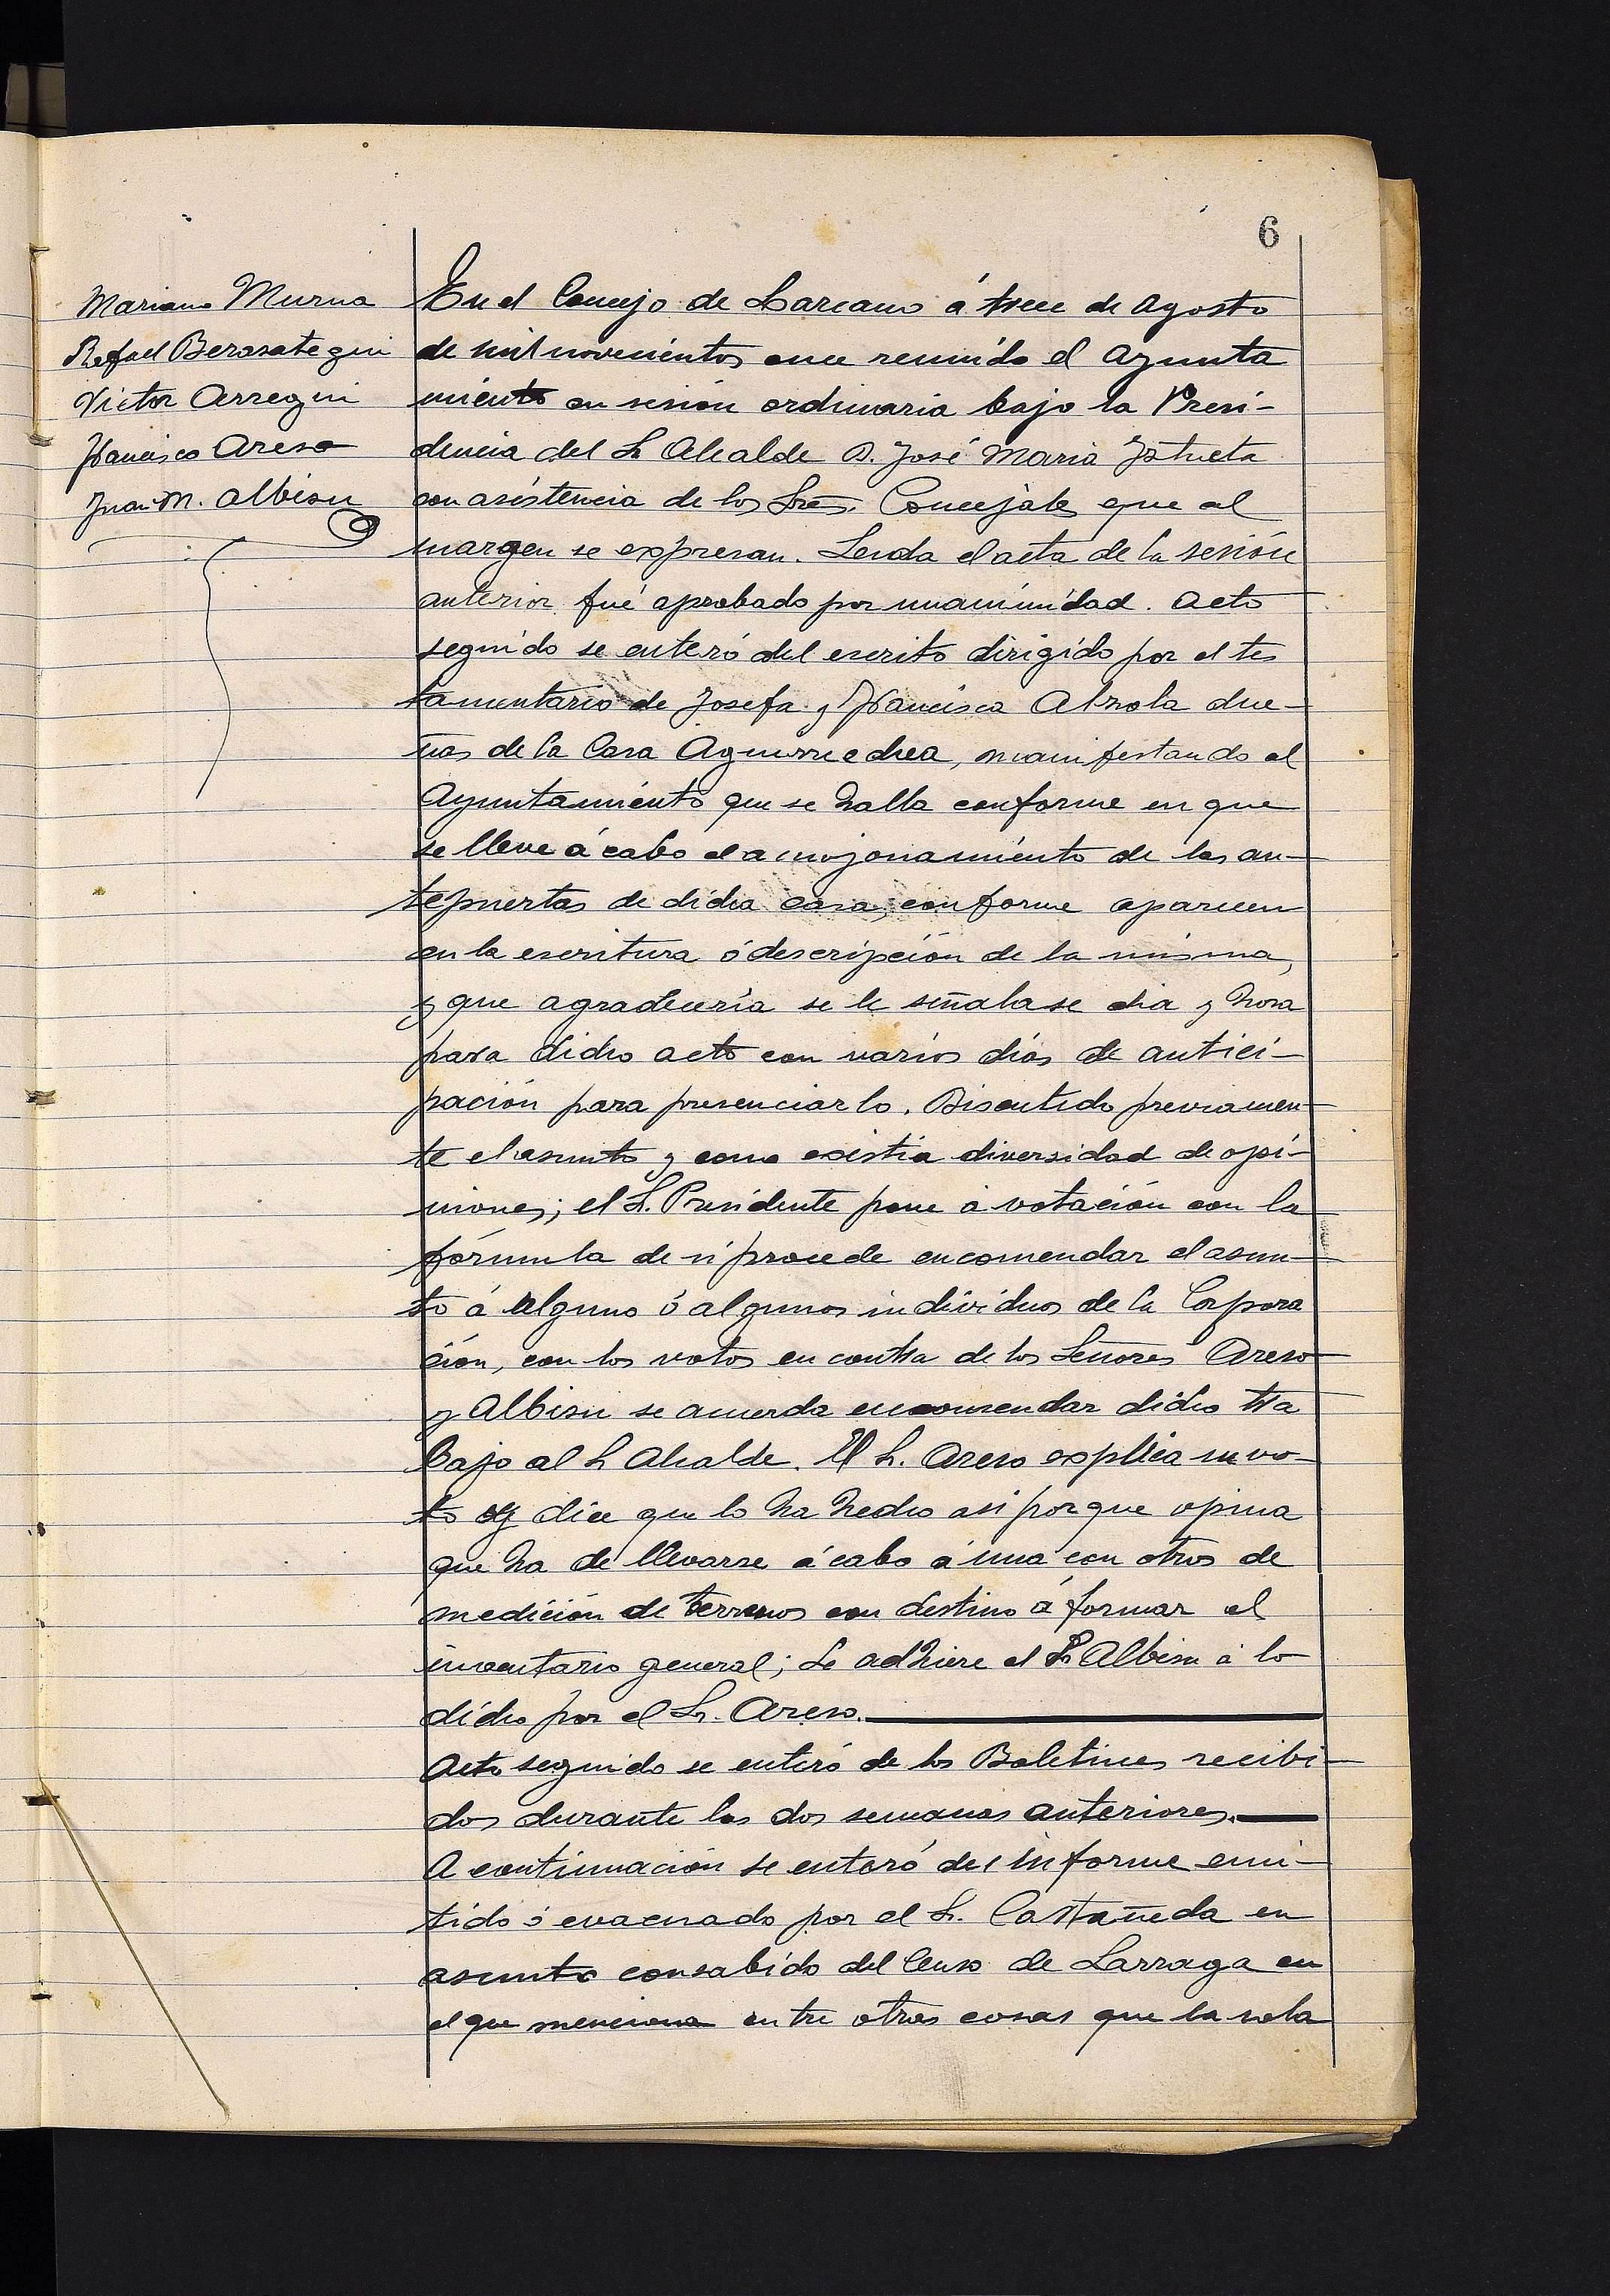 6
Mariano Murua
Rafael Berasategui
Victor Arregui
Francisco Areso
Juan M. Albisu
En el Concejo de Lazcano á trece de Agosto
de mil novecientos once reunido el Ayunta
miento en sesión ordinaria bajo la Presi-
dencia del Sr Alcalde D. José Maria Iztueta
con asistencia de los Sres. Concejales que al
margen se expresan. Leida el acta de la sesión
anterior fué aprobado por unanimidad. Acto
seguido se enteró del escrito dirigido por el tes
tamentario de Josefa y Francisca Alzola due-
ñas de la Casa Aguirreechea, manifestando al
Ayuntamiento que se halla conforme en que
se lleve á cabo el amojonamiento de las an-
tepuertas de dicha casa, conforme aparecen
en la escritura ó descripción de la misma,
y que agradecería se le señalase dia y hora
para dicho acto con varios dias de antici-
pación para presenciarlo. Discutido previamen-
te el asunto y como existia diversidad de opi-
niones; el Sr. Presidente pone á votación con la
fórmula de si procede encomendar el asun-
to á alguno ó algunos individuos de la Corpora
ción, con los votos en contra de los Señores Areso
y Albisu se acuerda encomendar dicho tra
bajo al Sr Alcalde. El Sr. Areso explica su vo-
to y dice que lo ha hecho asi porque opina
que ha de llevarse á cabo á una con otros de
medición de terrenos con destino á formar el
inventario general; Se adhiere el Sr Albisu á lo
dicho por el Sr. Areso.
Acto seguido se enteró de los Boletines recibi-
dos durante las dos semanas anteriores.
A continuación se enteró del informe emi-
tido ó evacuado por el Sr. Castañeda en
asunto consabido del Censo de Larraga en
el que menciona entre otras cosas que la nota